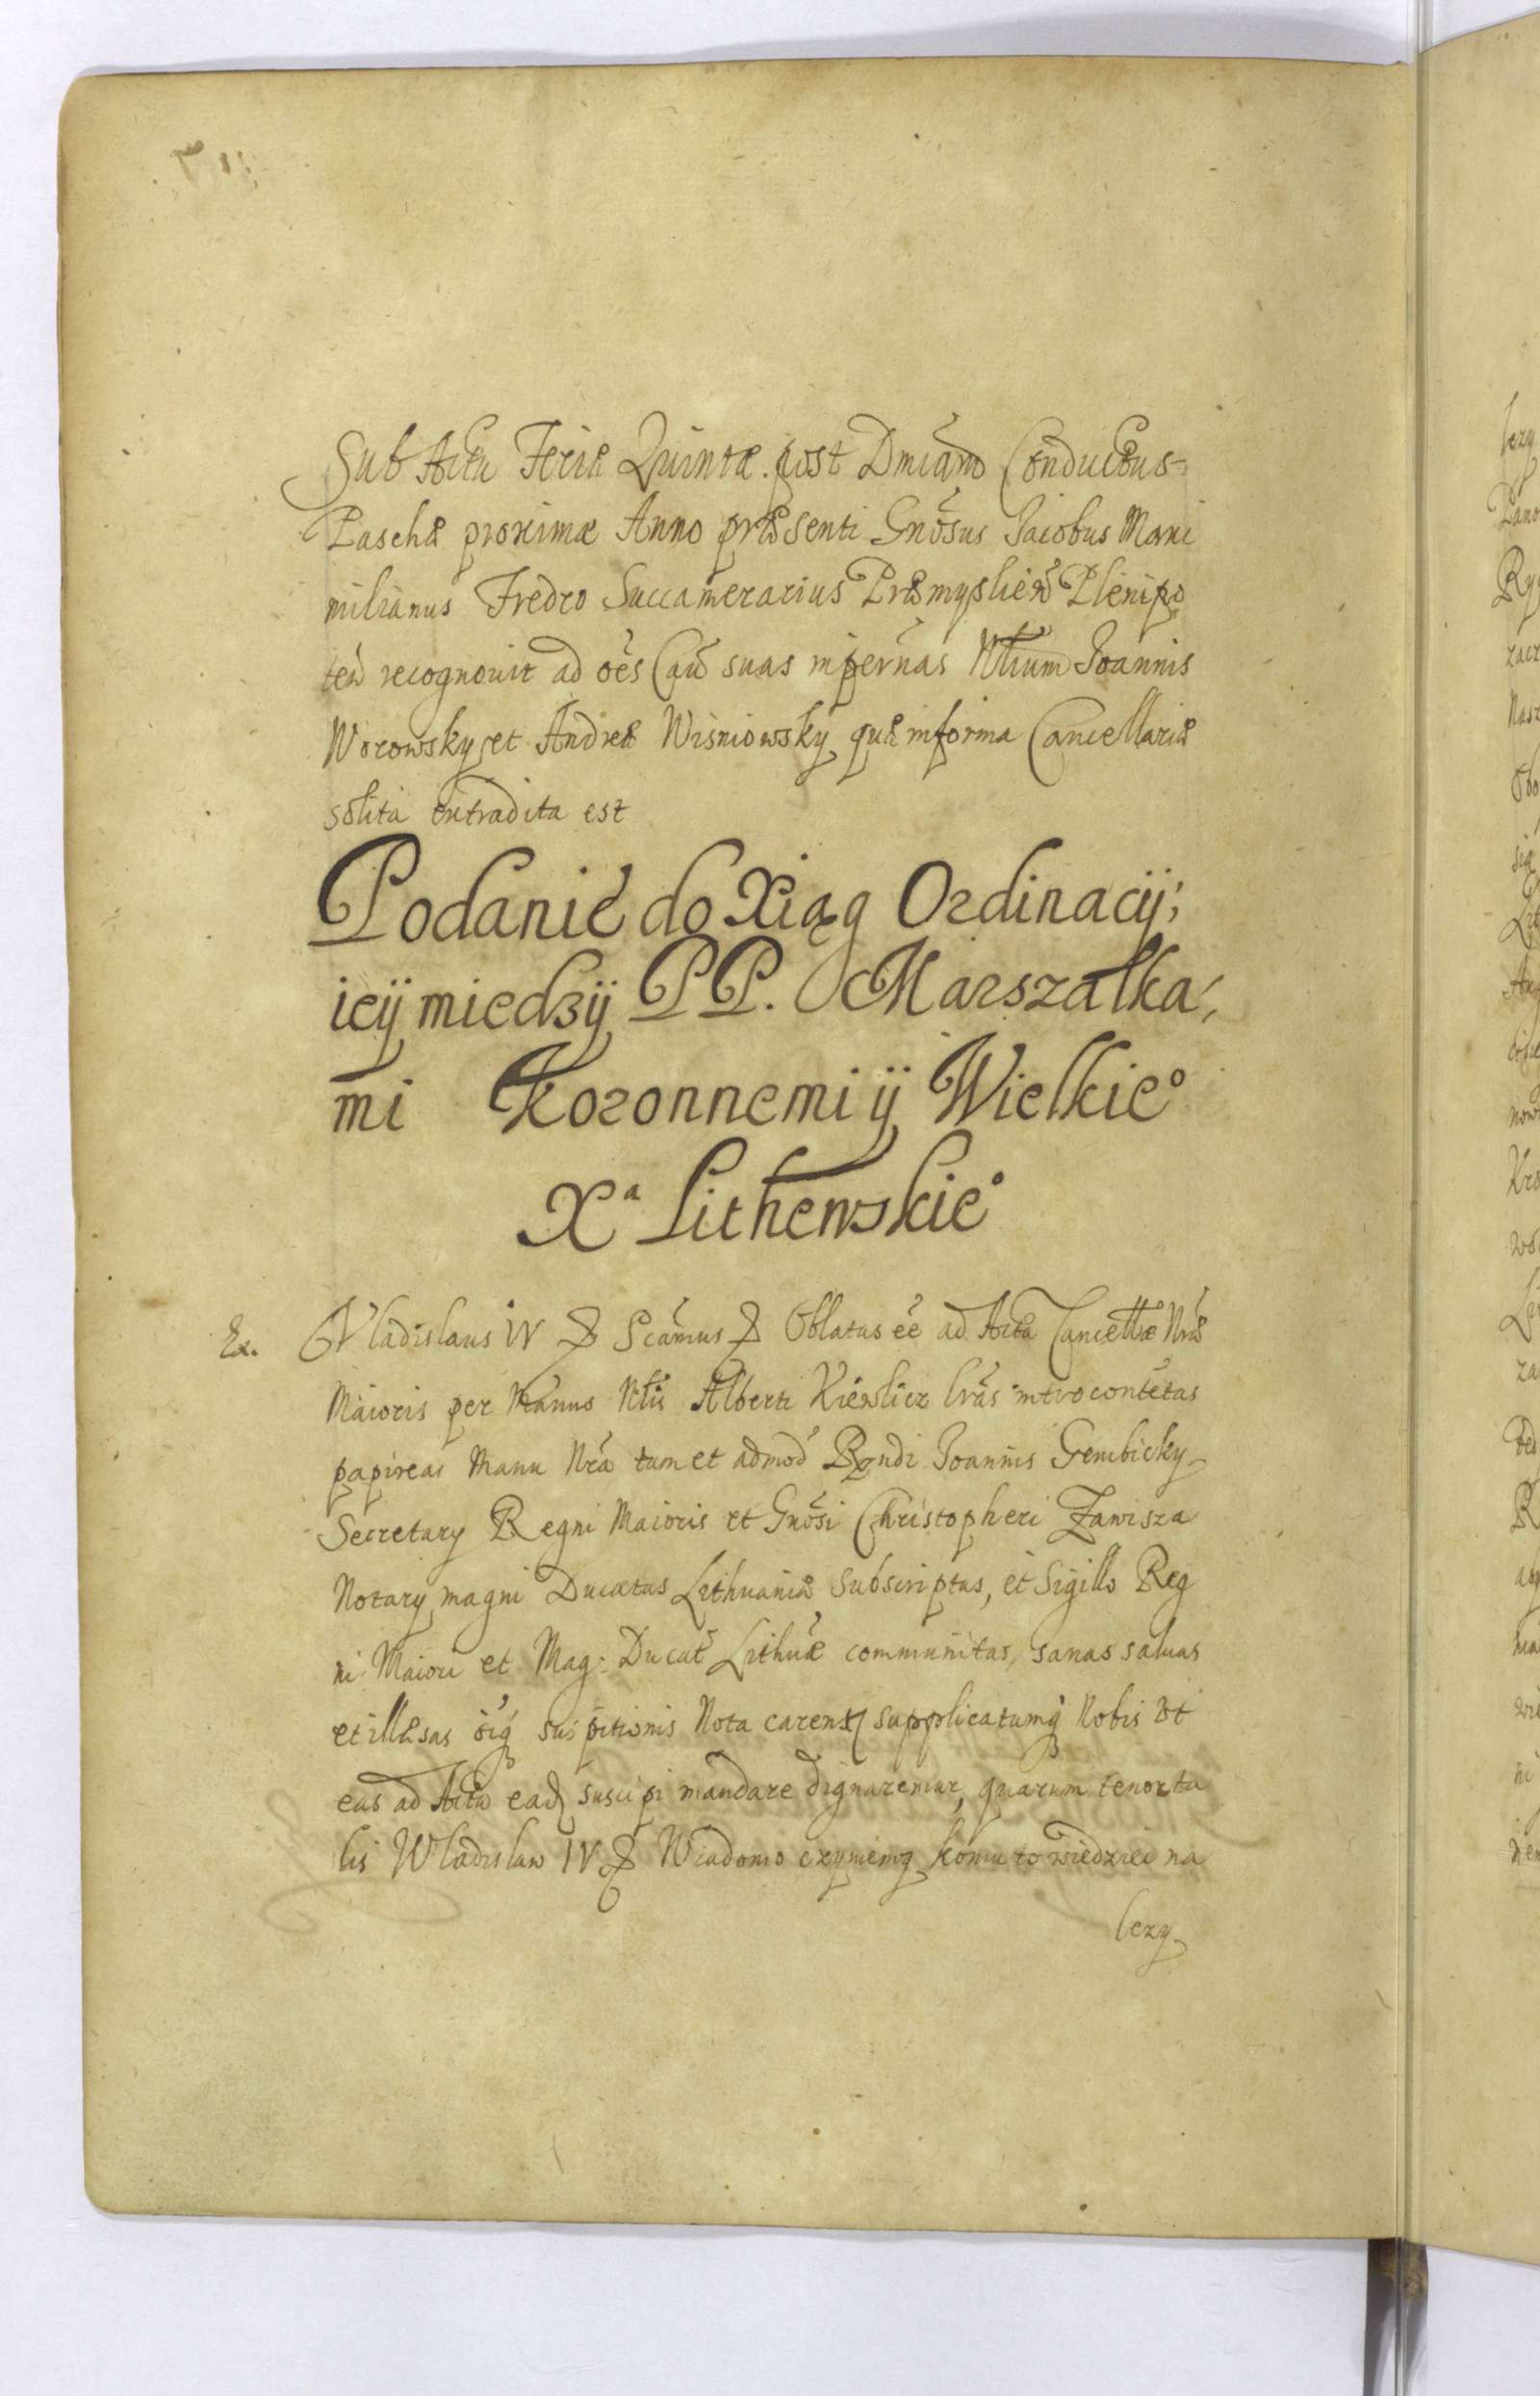 Sub Acta Feriæ Quintæ post Dmcam Conductus
Paschæ proximæ Anno præsenti Gnosus Jacobus Maxi
milianus Fredro Succamerarius Præmyslien Plenipo
ten recognovit ad oes Cau suas inferñas Nlium Joannis
Worowsky et Andreæ Wisniowsky quæ in forma Cancellariæ
solita extradita est
Podanié do Xiąg Ordinacij;
icij miedzij PP. Marszałka,
mi Koronnemi ij Wielkie°
Xª Lithewskie°
Ex. Vladislaus IV Scamus Oblatas eé ad Acta Cancellæ Nræ
Maioris per Manus Nlis Alberti Kierslicz lras introcontétas
papireas Manu Nra tum et admod Rndi Joannis Gembicky
Secretary Regni Maioris et Gnosi Christopheri Zawisza
Notary magni Ducatus Lithuaniæ Subscriptas, et Sigillo Reg
ni Maiori et Mag: Ducat Lithuæ communitas, sanas salvas
et illæsas oíq suspitionis Nota carens supplicatumq Nobis Vt
eas ad Acta ead suscipi mandare dignaremur, quarum tenor ta
lis Wladislaw IV Wiadomo czyniemy komu to wiedziec na
lezy